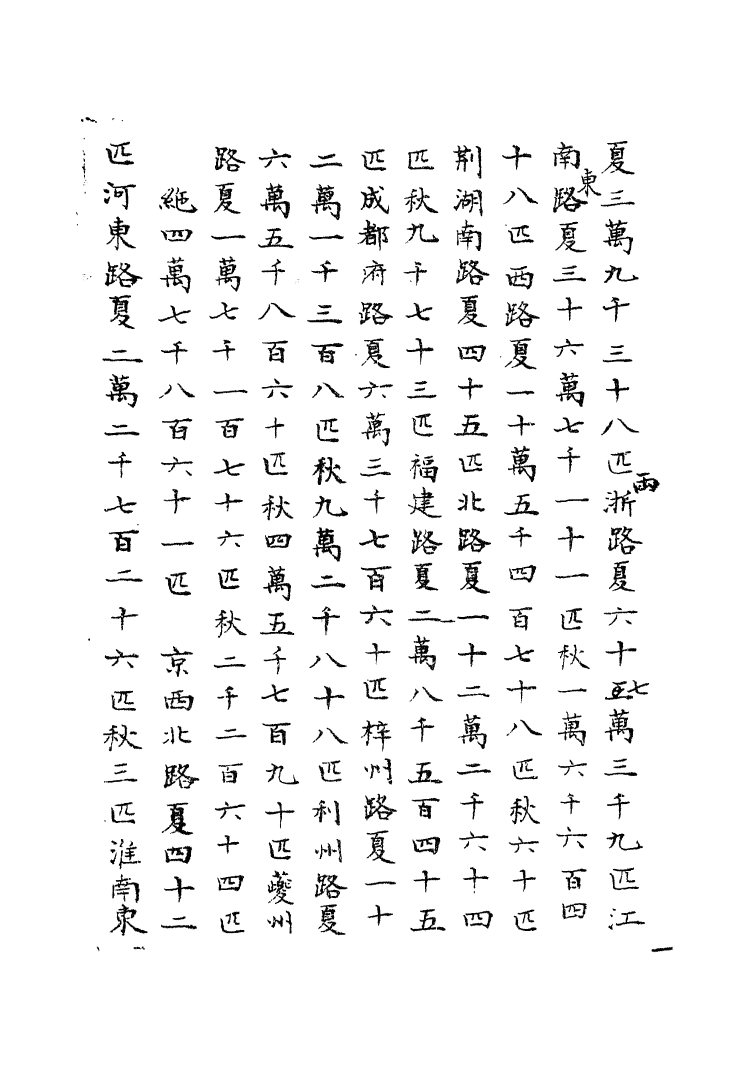 夏三萬九千三十八匹浙兩路夏六十五七萬三千九匹江
南東路夏三十六萬七千一十一匹秋一萬六千六百四
十八匹西路夏一十萬五千四百七十八匹秋六十匹
荆湖南路夏四十五匹北路夏一十二萬二千六十四
匹秋九千七十三匹福建路夏二萬八千五百四十五
匹成都府路夏六萬三千七百六十匹梓州路夏一十
二萬一千三百八匹秋九萬二千八十八匹利州路夏
六萬五千八百六十匹秋四萬五千七百九十匹夔州
路夏一萬七千一百七十六匹秋二千二百六十四匹
絁四萬七千八百六十一匹　京西北路夏四十二
匹河東路夏二萬二千七百二十六匹秋三匹淮南東